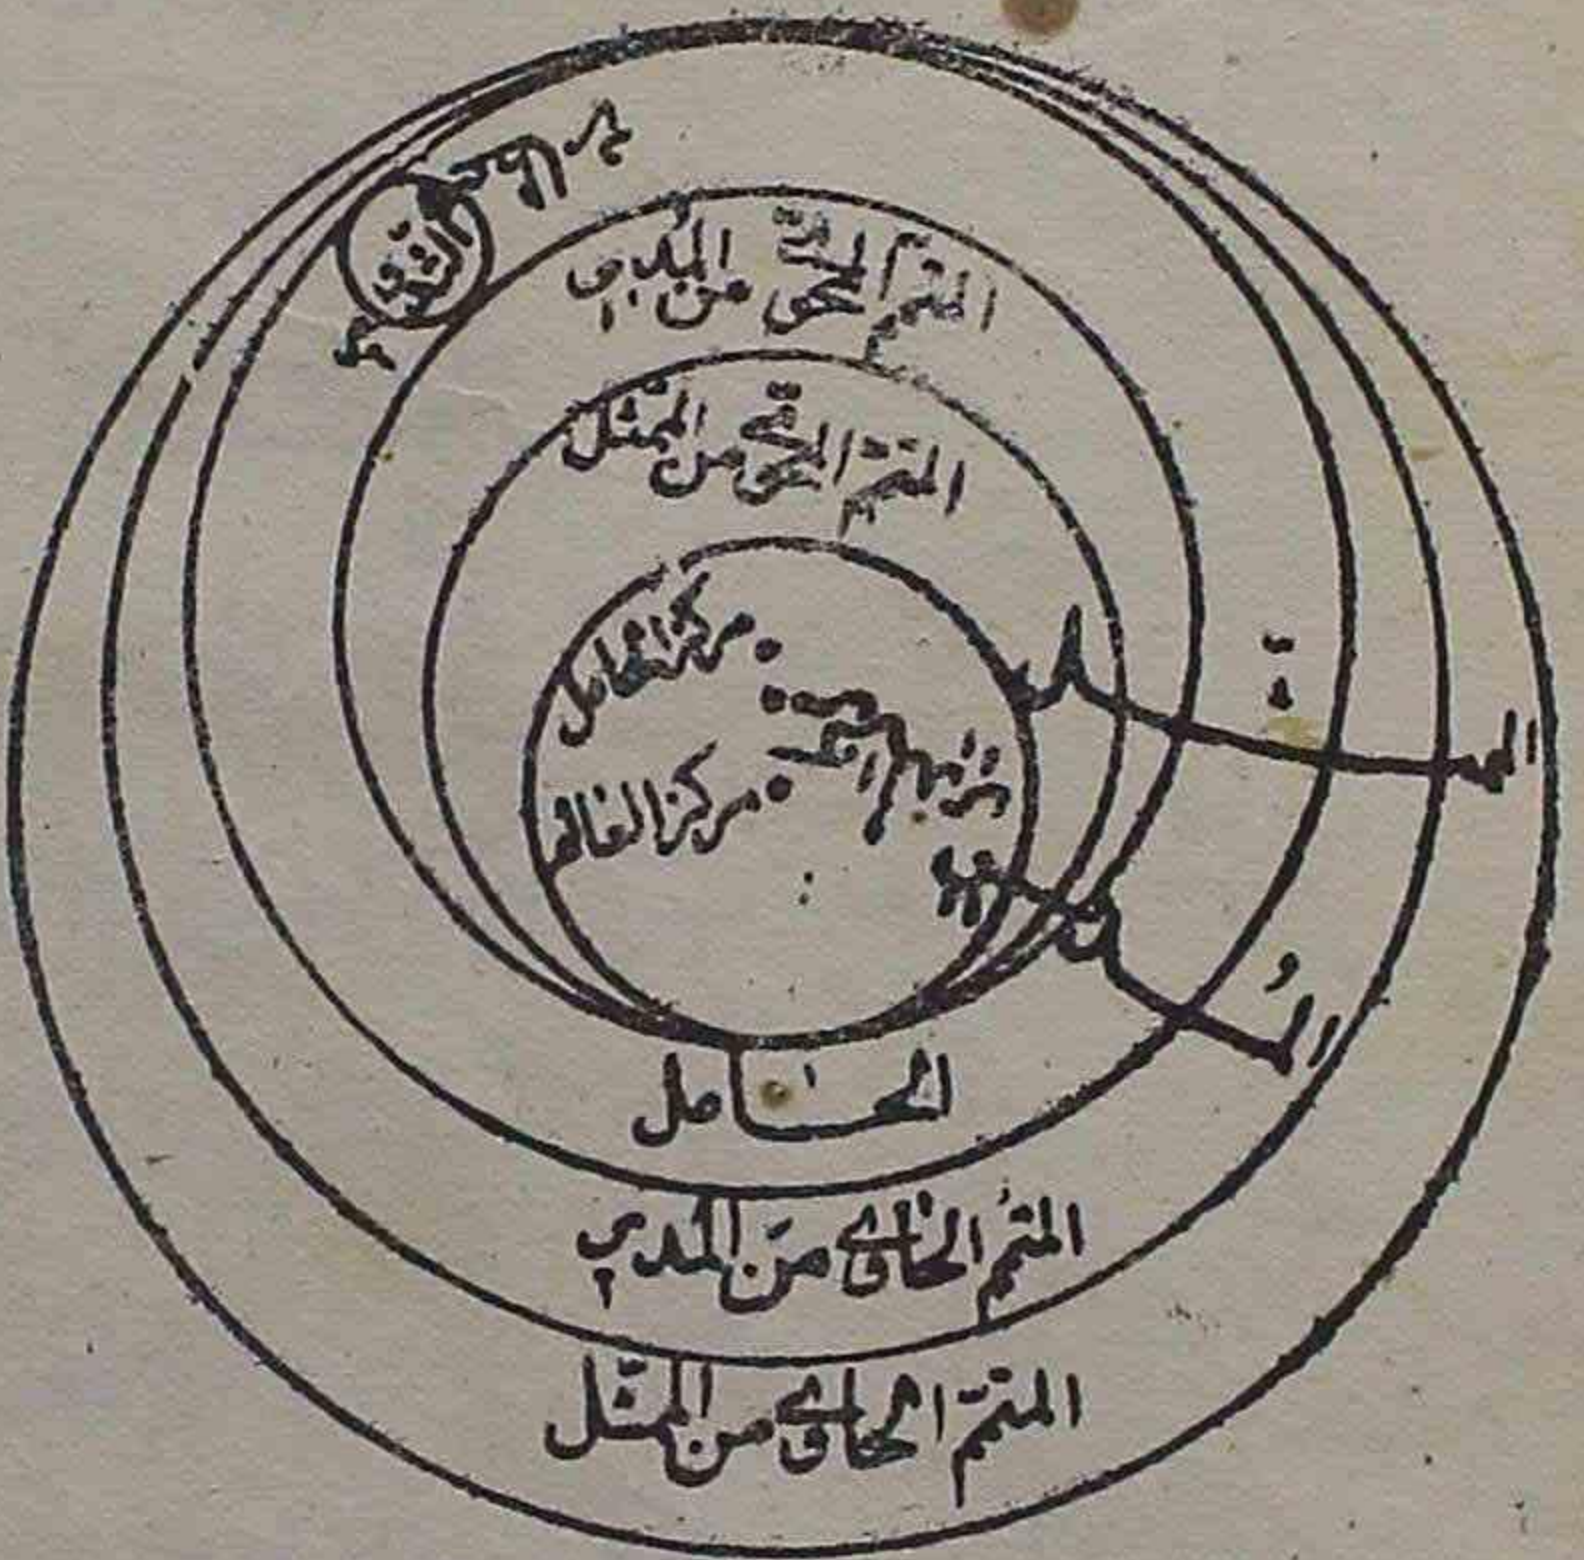 التدوير
المتمم المحوي من المدير
المتمم المحوي من الممثل
مركز الحامل
مركز المدير
مركز العالم
الممثل
المدير
الحامل
المتمم الحاوي من المدير
المتمم الحاوي من الممثل